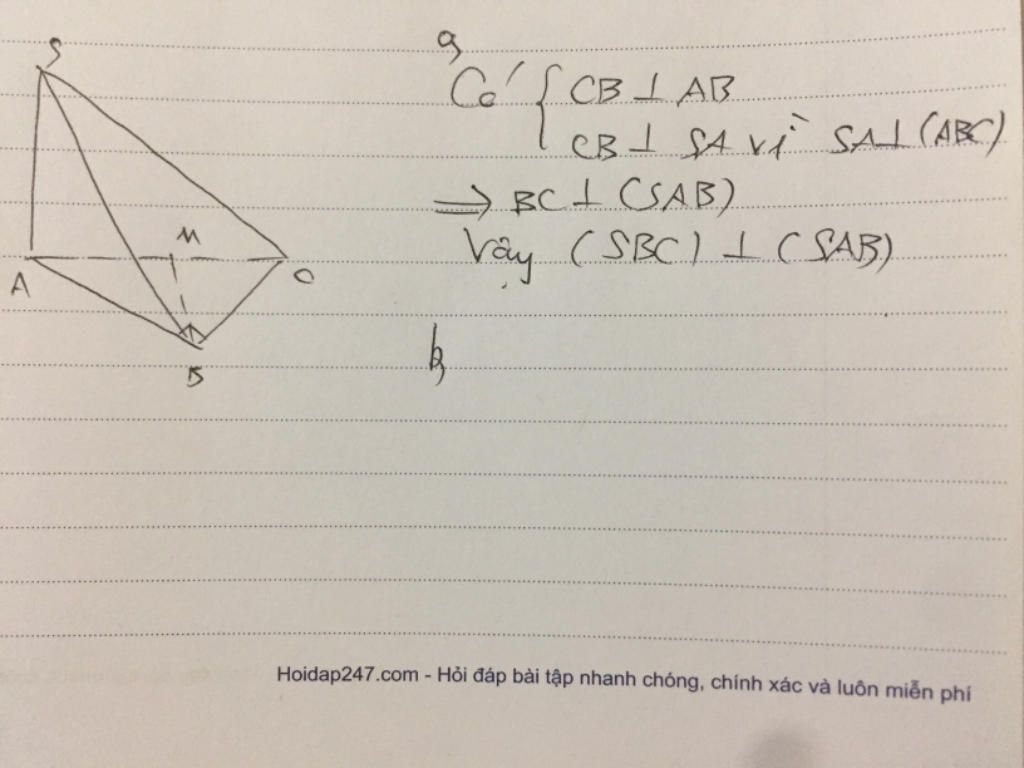 S
a,
Có { CB ⊥ AB
CB ⊥ SA vì SA ⊥ (ABC)
⇒ BC ⊥ (SAB)
M
Vậy (SBC) ⊥ (SAB)
A
C
b,
B
Hoidap247.com - Hỏi đáp bài tập nhanh chóng, chính xác và luôn miễn phí